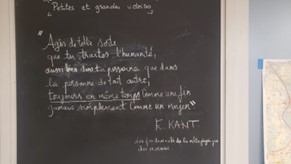 Petites et grandes
"Agis de telle sorte
que tu traites l'humanité,
aussi bien dans ta personne que dans
la personne de tout autre,
toujours en même temps comme une fin
jamais simplement comme un moyen"
E. KANT